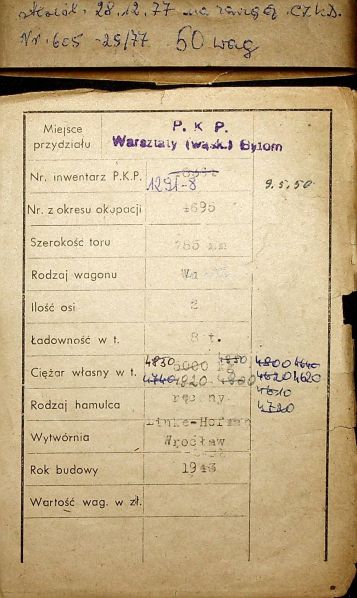 28.12.77 na
Nr. 605 -25/77 60 wag
Miejsce przydziału
P. K. P.
Warsztaty (wąsk.) Bytom
Nr. inwentarz P.K.P.
1291-8 9.5.50.
Nr. z okresu okupacji 4695
Szerokość toru 785 mm
Rodzaj wagonu
Ilość osi 2
Ładowność w t. 8 t.
4830 4800 4640
Ciężar własny w t. 5000 kg
4740 4820 4620 4620
4610
Rodzaj hamulca ręczny
4720
Linke-Hofman
Wytwórnia Wrocław
Rok budowy 1943
Wartość wag. w zł.